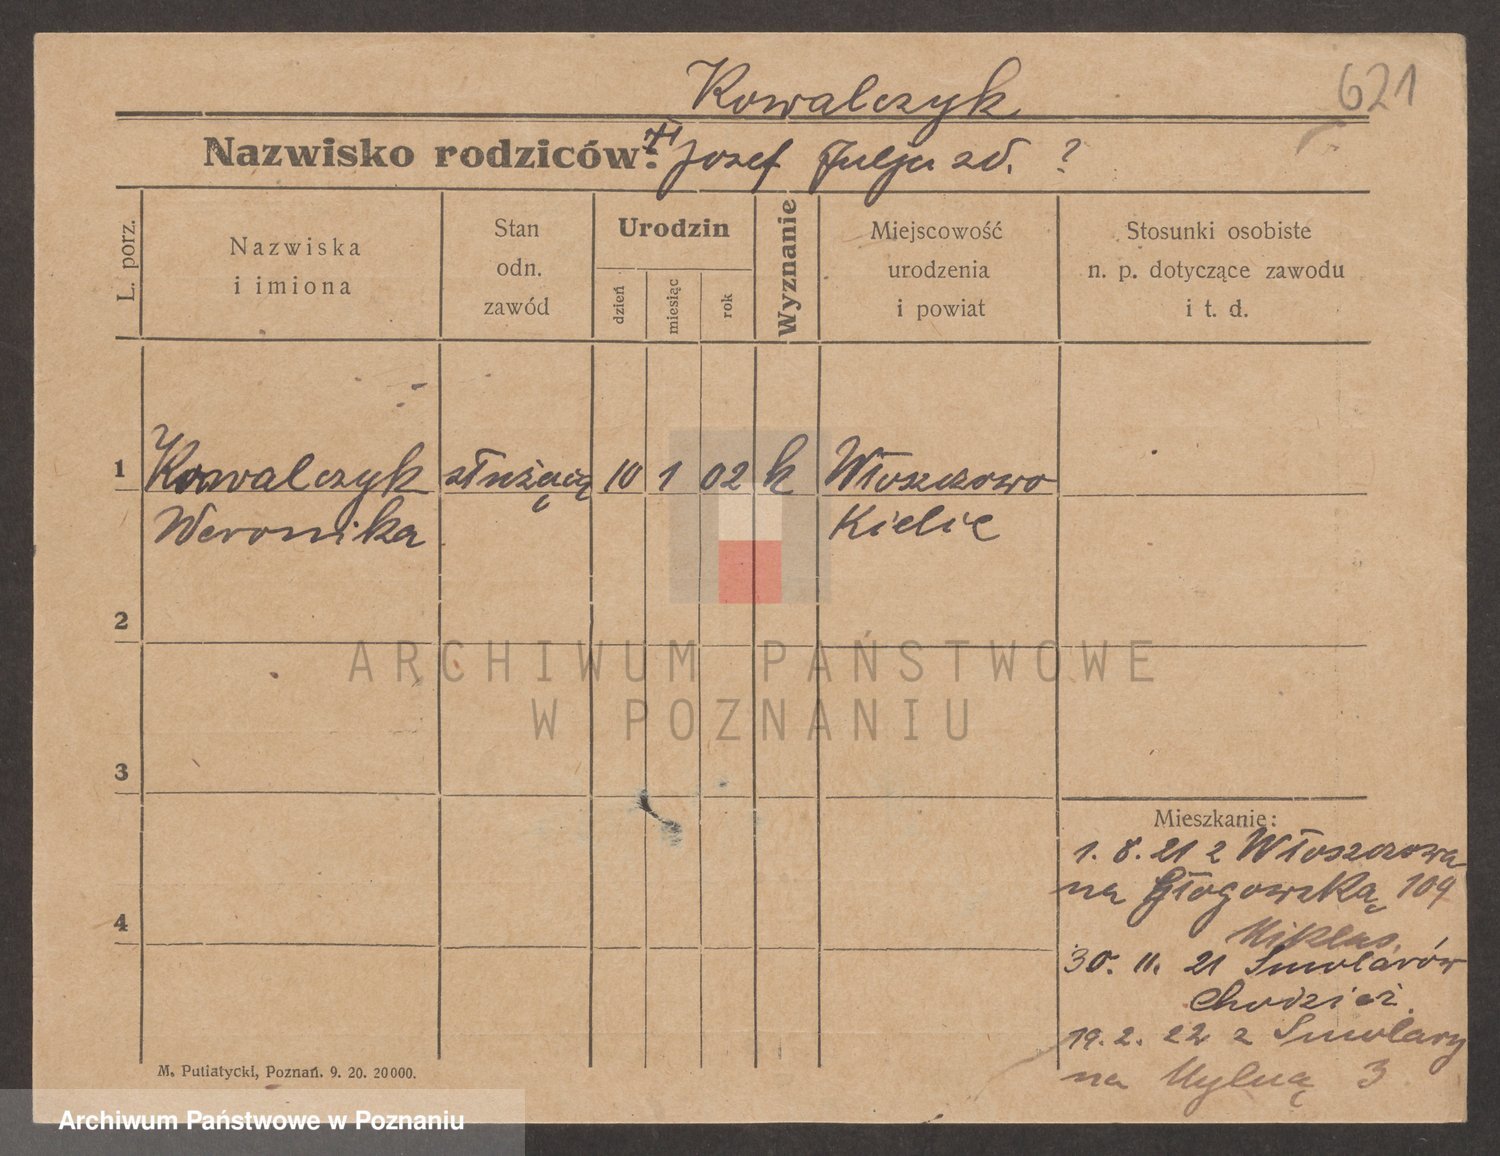 Kowalczyk
621
Nazwisko rodziców: Jozef Julja zd. ?
L. porz.
Nazwiska
i imiona
Stan
odn.
zawód
Urodzin
dzień
miesiąc
rok
Wyznanie
Miejscowość
urodzenia
i powiat
Stosunki osobiste
n. p. dotyczące zawodu
i t. d.
1 Kowalczyk służącą 10 1 02 k Włoszczowo
Weronika Kielie
2
ARCHIWUM PAŃSTWOWE
W POZNANIU
3
Mieszkanie:
1. 8. 21 z Włoszczowa
na Głogowską 109
Miklas
4
30. 11. 21 Smolarów
Chodzież
19. 2. 22 z Smolary
na Mylną 3
M. Putiatycki, Poznań. 9. 20. 20000.
Archiwum Państwowe w Poznaniu